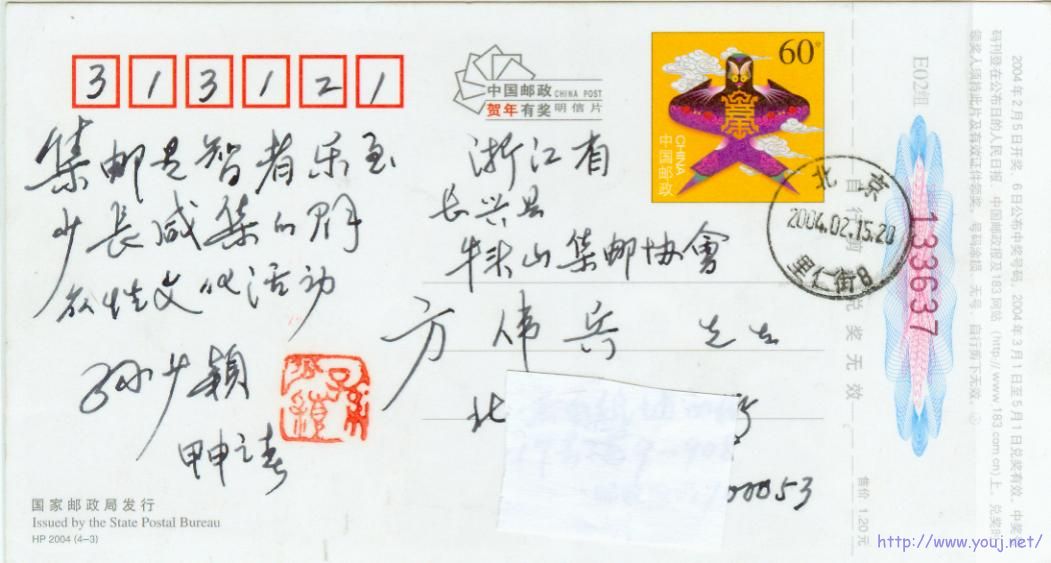 313121
中国邮政 CHINA POST
贺年有奖 明信片
60
CHINA
中国邮政
北京
2004.02.15.20
里仁街8
集邮是智者乐
少长咸集的群
众性文化活动
孙少颖
甲申之春
浙江省
长兴县
牛头山集邮协會
方伟兵 先生
北
00053
国家邮政局发行
Issued by the State Postal Bureau
HP 2004 (4-3)
自行剪 兑奖无效
售价 1.20元
E02组
133637
2004年2月5日开奖，6日公布中奖号码。2004年3月1日至5月1日兑奖有效。中奖
码刊登在公布日的人民日报、中国邮政报及183网站（http://www.183.com.cn）上。兑奖时
领奖人须持此片及有效证件领奖。号码涂损、无号、自行剪下无效。
http://www.youj.net/